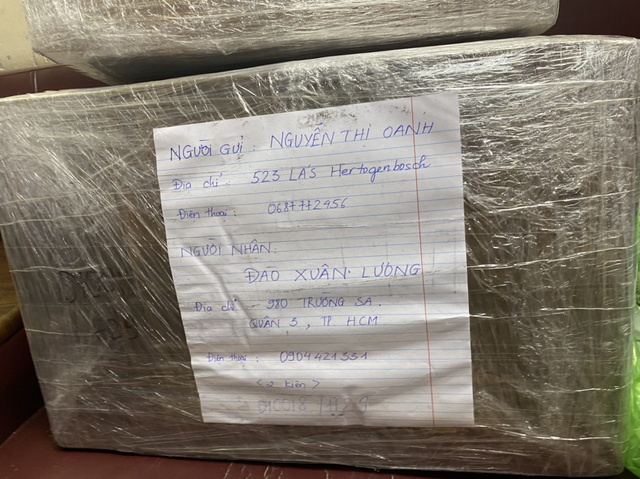 NGƯỜI GỬI : NGUYỄN THỊ OANH
Địa chỉ : 523 LA'S Hertogenbosch
Điện thoại : 0687772956
NGƯỜI NHẬN:
ĐAO XUÂN LƯƠNG
Địa chỉ 980 TRƯỜNG SA.
QUẬN 3, TP. HCM
Điện thoại : 0904421331
<2 kiện>